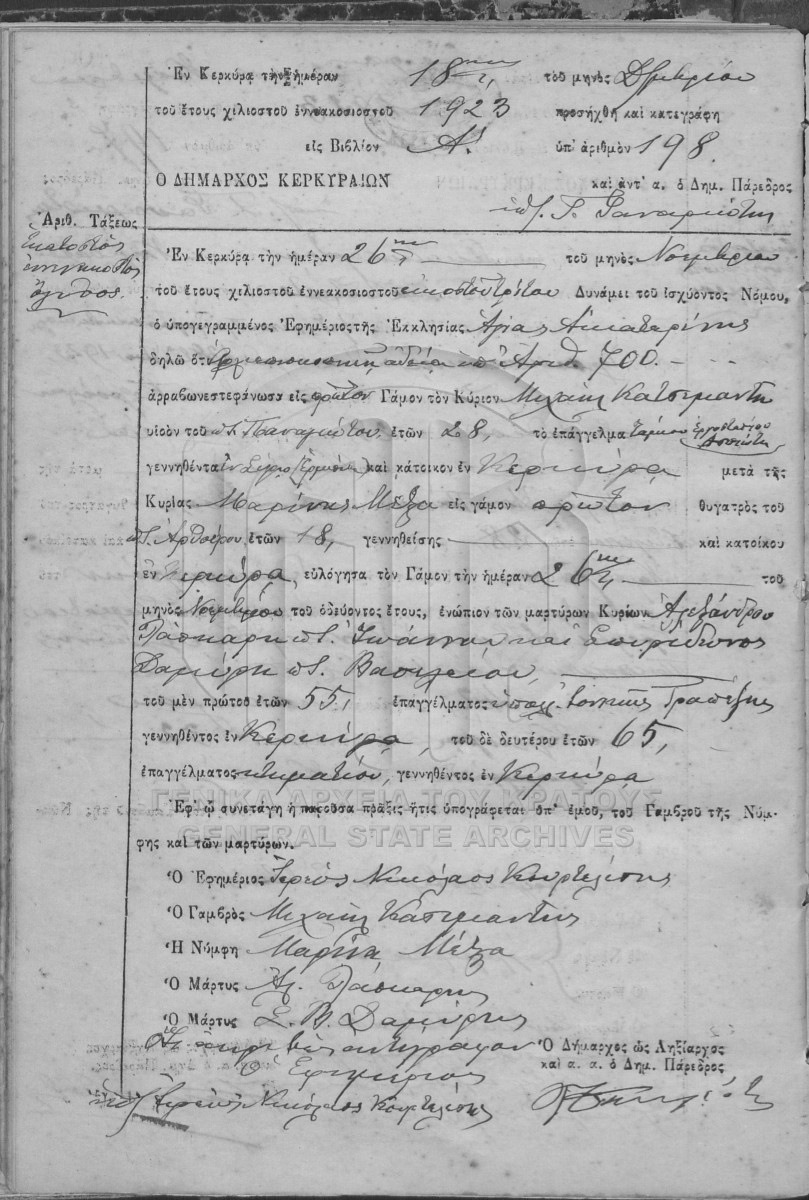 Ἐν Κερκύρᾳ τὴν ἡμέραν 18ην τοῦ μηνὸς Δ)μβρίου
τοῦ ἔτους χιλιοστοῦ ἐννεακοσιοστοῦ 1923 προσήχθη καὶ κατεγράφη
εἰς Βιβλίον Α' ὑπ' ἀριθμὸν 198
Ο ΔΗΜΑΡΧΟΣ ΚΕΡΚΥΡΑΙΩΝ καὶ ἀντ' α. ὁ Δημ. Πάρεδρος
Ἀριθ. Τάξεως
Ἑκατοστὸς
ἐννενηκοστὸς
ὄγδοος.
Ἐν Κερκύρᾳ τὴν ἡμέραν 26ην τοῦ μηνὸς Νοεμβρίου
τοῦ ἔτους χιλιοστοῦ ἐννεακοσιοστοῦ εἰκοστοῦ τρίτου Δυνάμει τοῦ ἰσχύοντος Νόμου,
ὁ ὑπογεγραμμένος Ἐφημέριος τῆς Ἐκκλησίας Ἁγίας Αἰκατερίνης
δηλῶ ὅτι ἀδείᾳ ὑπ' Ἀριθ. 700
ἀρραβωνεστεφάνωσα εἰς πρῶτον Γάμον τὸν Κύριον Μιχαὴλ Κατσιμαντῆ
υἱοὸν τοῦ ποτ. Παναγιώτου ἐτῶν 28, τὸ ἐπάγγελμα ἐργοστασίου
Ἀσπιώτη
γεννηθέντα καὶ κάτοικον ἐν Κερκύρᾳ μετὰ τῆς
Κυρίας Μαρίνης Μέζα εἰς γάμον πρῶτον θυγατρὸς τοῦ
ποτ. ἐτῶν 18, γεννηθείσης καὶ κατοίκου
ἐν Κερκύρᾳ, εὐλόγησα τὸν Γάμον τὴν ἡμέραν 26ην τοῦ
μηνὸς Νοεμβρίου τοῦ ὁδεύοντος ἔτους, ἐνώπιον τῶν μαρτύρων Κυρίων Ἀλεξάνδρου
Λάσκαρη ποτ. Ἰωάννου καὶ Σπυρίδωνος
Δαμίρη ποτ. Βασιλείου,
τοῦ μὲν πρώτου ἐτῶν 55, ἐπαγγέλματος ὑπαλ. Ἰονικῆς Τραπέζης
γεννηθέντος ἐν Κερκύρᾳ, τοῦ δὲ δευτέρου ἐτῶν 65,
ἐπαγγέλματος κτηματίου, γεννηθέντος ἐν Κερκύρᾳ
ΓΕΝΙΚΑ ΑΡΧΕΙΑ ΤΟΥ ΚΡΑΤΟΥΣ
Ἐφ' ᾧ συνετάγη ἡ παροῦσα πρᾶξις ἥτις ὑπογράφεται ὑπ' ἐμοῦ, τοῦ Γαμβροῦ τῆς Νύμ-
GENERAL STATE ARCHIVES
φης καὶ τῶν μαρτύρων.
Ὁ Ἐφημέριος Ἱερεὺς Νικόλαος Κουρτελέσης
Ὁ Γαμβρὸς Μιχαὴλ Κατσιμαντῆς
Ἡ Νύμφη Μαρίνα Μέζα
Ὁ Μάρτυς Ἀλ. Λάσκαρης
Ὁ Μάρτυς Σ. Β. Δαμίρης
Ὅτι ἀκριβὲς ἀντίγραφον Ὁ Δήμαρχος ὡς Ληξίαρχος
Ὁ Ἐφημέριος καὶ α. α. ὁ Δημ. Πάρεδρος
Ἱερεὺς Νικόλαος Κουρτελέσης